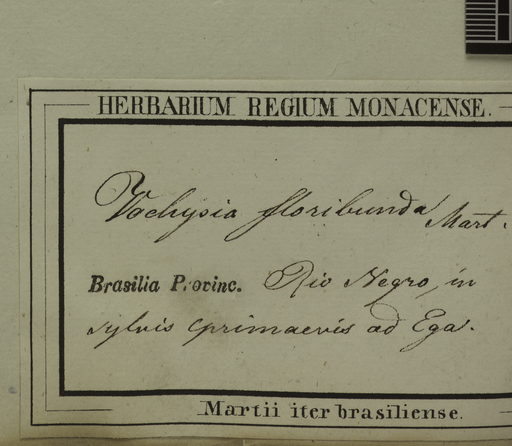 HERBARIUM REGIUM MONACENSE.
Vochysia floribunda Mart.
Brasilia Provinc. Rio Negro, in
sylvis primaevis ad Ega.
Martii iter brasiliense.